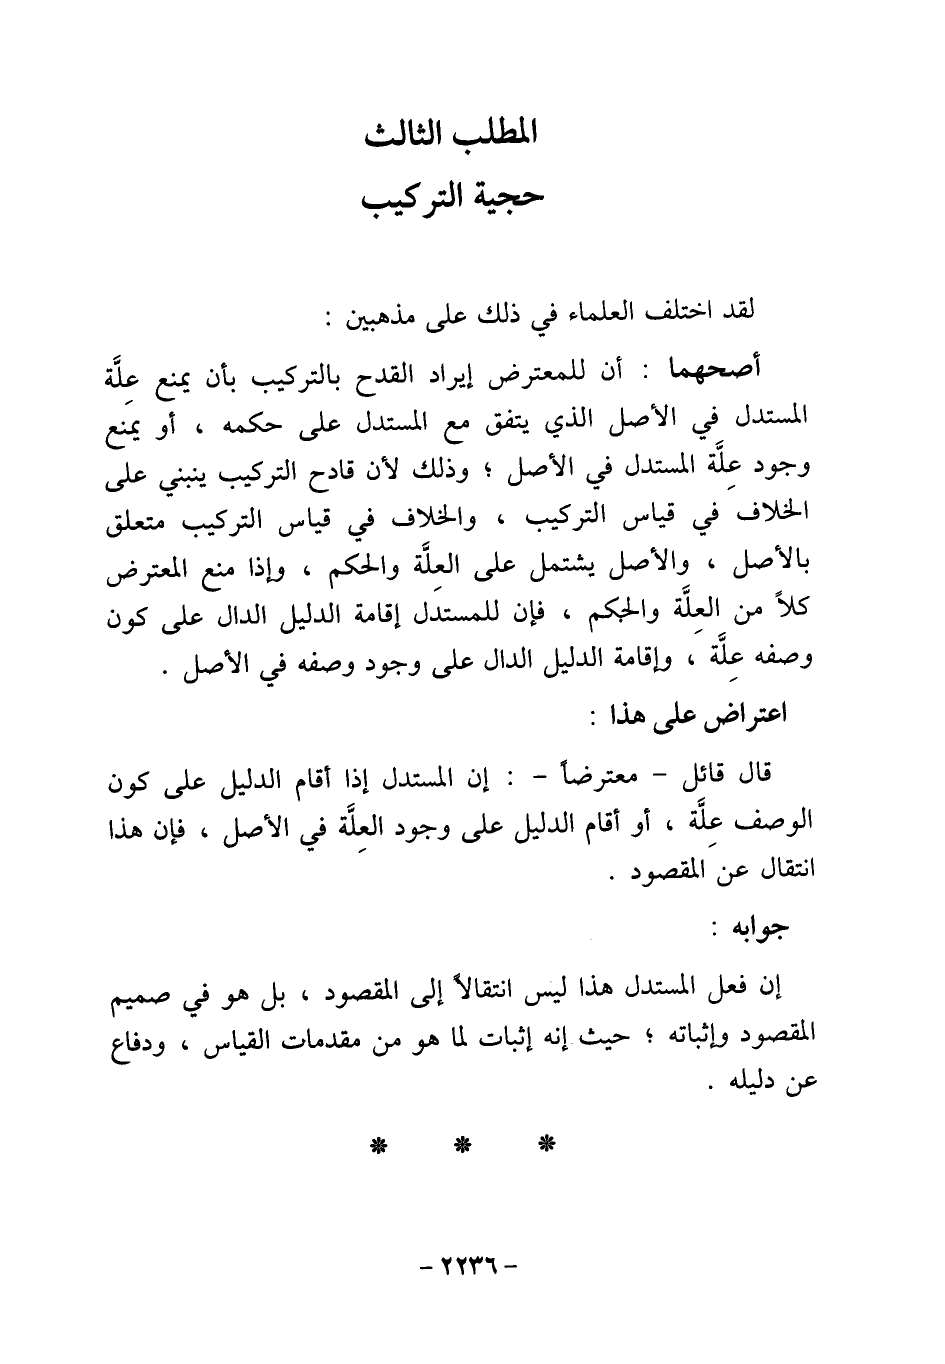 المطلب الثالث
حجية التركيب
لقد اختلف العلماء في ذلك على مذهبين :
أصحهما : أن للمعترض إيراد القدح بالتركيب بأن يمنع عِلَّة
المستدل في الأصل الذي يتفق مع المستدل على حكمه ، أو يمنع
وجود عِلَّة المستدل في الأصل ؛ وذلك لأن قادح التركيب ينبني على
الخلاف في قياس التركيب ، والخلاف في قياس التركيب متعلق
بالأصل ، والأصل يشتمل على العِلَّة والحكم ، وإذا منع المعترض
كلاً من العِلَّة والحكم ، فإن للمستدل إقامة الدليل الدال على كون
وصفه عِلَّة ، وإقامة الدليل الدال على وجود وصفه في الأصل .
اعتراض على هذا :
قال قائل - معترضاً - : إن المستدل إذا أقام الدليل على كون
الوصف عِلَّة ، أو أقام الدليل على وجود العِلَّة في الأصل ، فإن هذا
انتقال عن المقصود .
جوابه :
إن فعل المستدل هذا ليس انتقالاً إلى المقصود ، بل هو في صميم
المقصود وإثباته ؛ حيث إنه إثبات لما هو من مقدمات القياس ، ودفاع
عن دليله .
* * *
- ٢٢٣٦ -